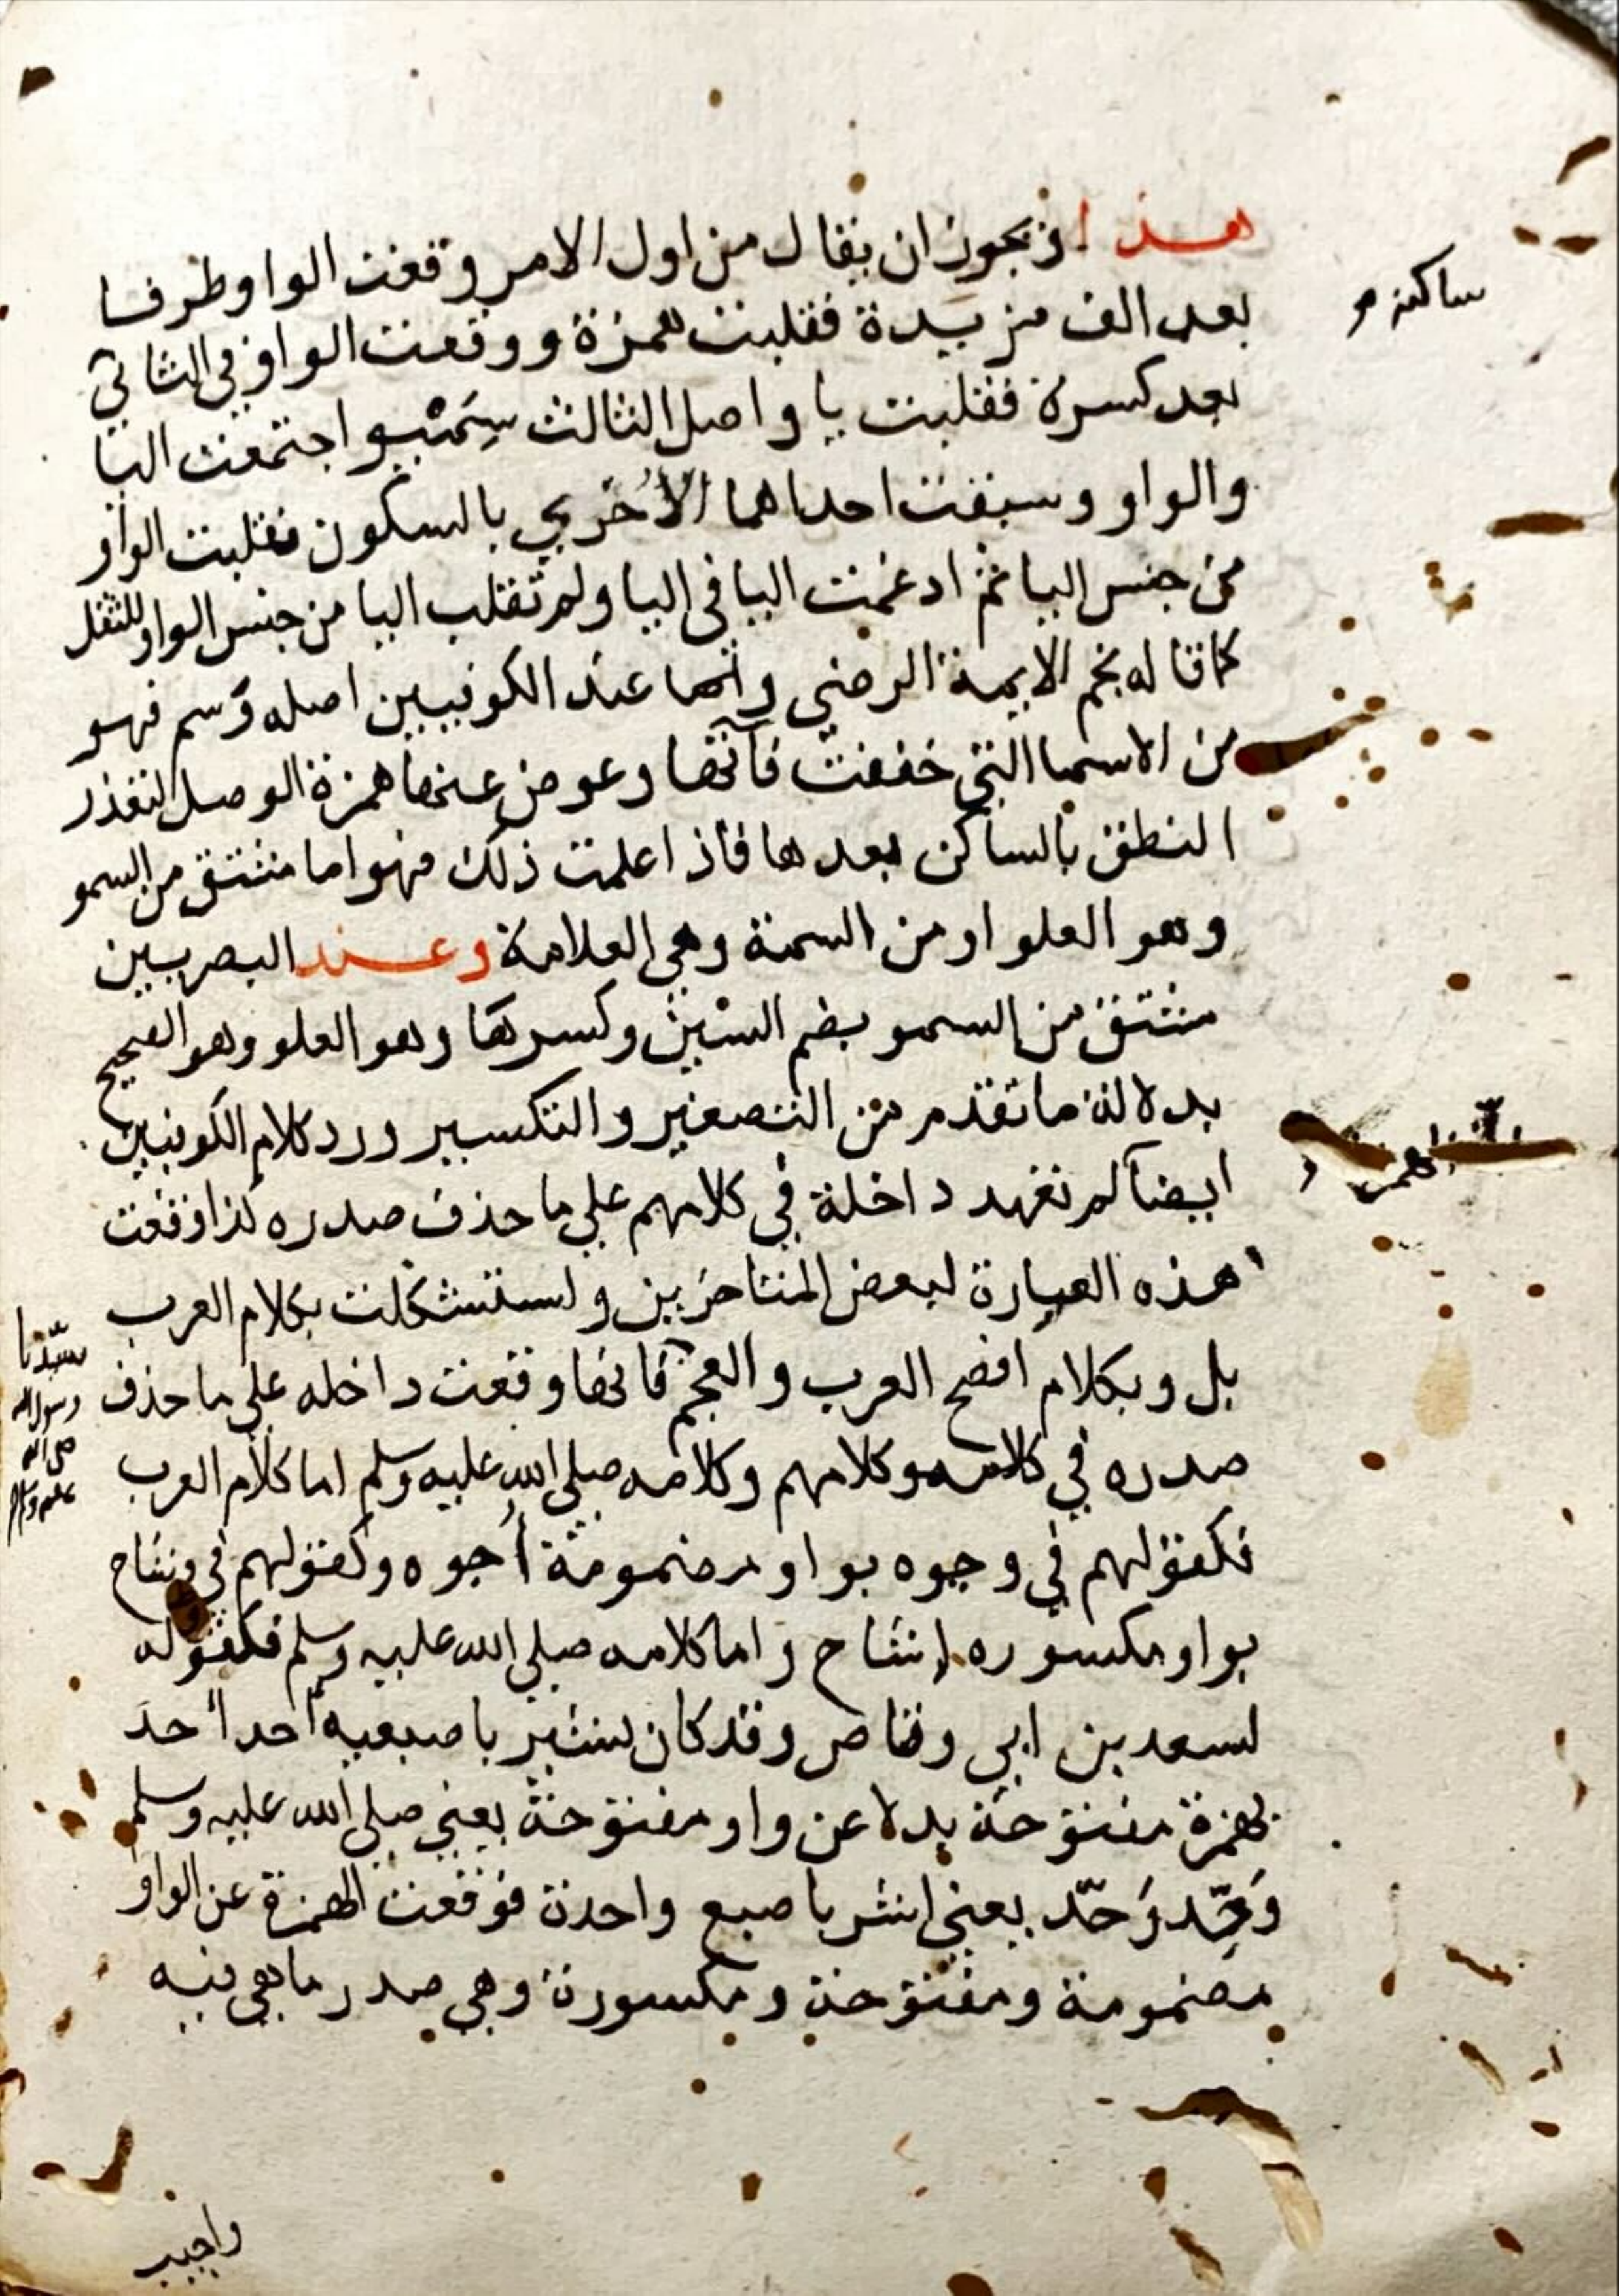 هذا ويجوز ان يقال من اول الامر وقعت الواو طرفا
بعد الف مزيدة فقلبت همزة ووقعت الواو في الثاني
بعد كسرة فقلبت يا واصل الثالث سميو اجتمعت اليا
والواو وسبقت احداهما الأخري بالسكون فقلبت الواو
من جنس اليا ثم ادغمت اليا في اليا ولم تقلب اليا من جنس الواو للثقل
كما قاله نجم الايمة الرضي واما عند الكوفيين اصله وسم فهو
من الاسما التي خففت فآتها وعوض عنها همزة الوصل لتعذر
النطق بالساكن بعدها فاذا علمت ذلك فهو اما مشتق من السمو
وهو العلو او من السمة وهي العلامة وعند البصريين
مشتق من السمو بضم السين وكسرها وهو العلو وهو الصحيح
بدلالة ما تقدم من التصغير والتكسير ورد كلام الكوفيين
ايضا لم تعهد داخلة في كلامهم علي ما حذف صدره كذا وقعت
هذه العبارة لبعض المتاخرين واستشكلت بكلام العرب
بل وبكلام افصح العرب والعجم فانها وقعت داخله علي ما حذف
صدره في كلامه وكلامهم وكلامه صلي الله عليه وسلم اما كلام العرب
فكقولهم في وجوه بواو مضمومة أُجوه وكقولهم في وشاح
بواو مكسوره إشاح واما كلامه صلي الله عليه وسلم فكقوله
لسعد بن ابي وقاص وقد كان يشير باصبعيه أحد أحد
بهمزة مفتوحة بدلا عن واو مفتوحة يعني صلي الله عليه وسلم
وَحِّد وَحِّد يعني اشر باصبع واحدة فوقعت الهمزة عن الواو
مضمومة ومفتوحة ومكسورة وهي صدر ما هي فيه
ساكنة
الهمزة
سيّدنا
رسول الله
صلى الله
عليه وسلم
واجيب